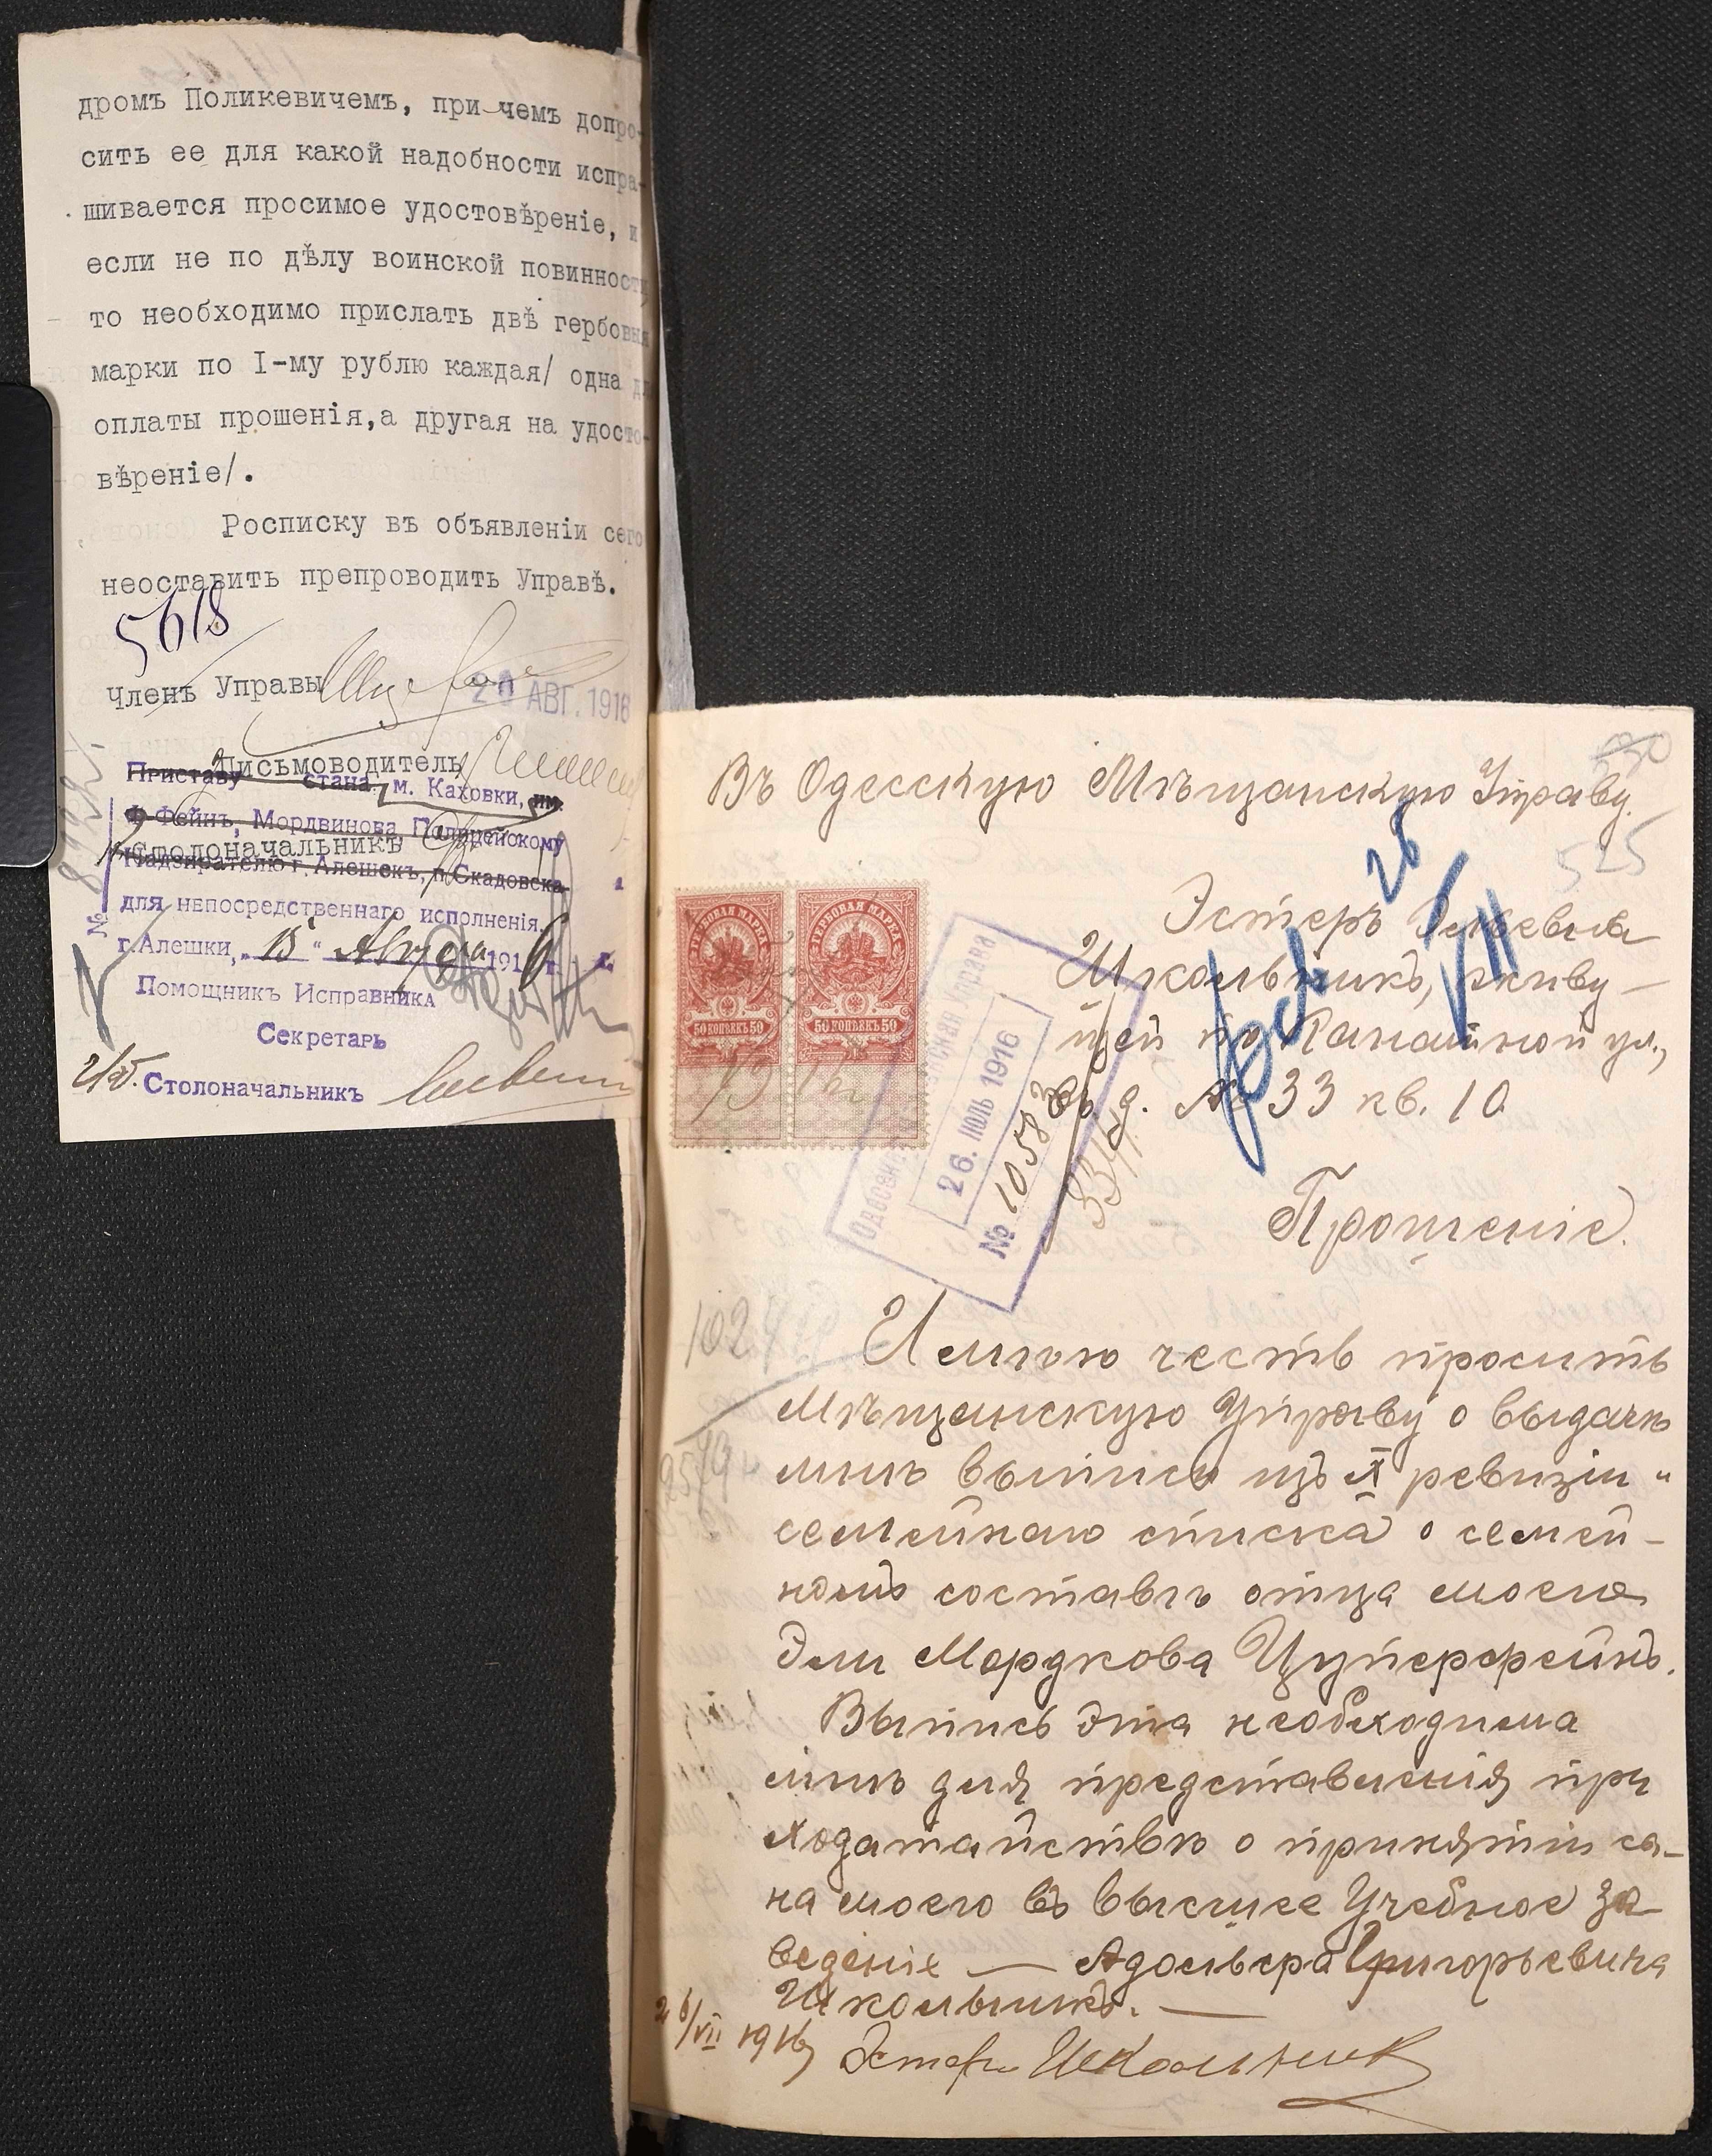 дромъ Поликевичемъ, при чемъ допро-
сить ее для какой надобности испра-
шивается просимое удостовѣреніе, и
если не по дѣлу воинской повинности
то необходимо прислать двѣ гербовыя
марки по I-му рублю каждая/ одна
оплаты прошенія,а другая на удосто-
вѣреніе/.
Росписку въ объявленіи сего
неоставить препроводить Управѣ.
5618
Членъ Управы
20 АВГ. 1916
Письмоводитель
Приставу стана м. Каховки, им.
Ф-Фейнъ, Мордвинова Полицейскому
Столоначальникъ
Надзирателю г. Алешекъ, п. Скадовска
для непосредственнаго исполненія.
г. Алешки, „ 15 " Августа 1916 г.
№
Помощникъ Исправника
Секретарь
Столоначальникъ
Въ Одесскую Мѣщанскую Управу.
525
26/VII
Эстеръ Эльевна
Школьникъ, живу-
щей по Канатной ул.,
въ д. № 33 кв. 10
ГЕРБОВАЯ МАРКА
50 КОПѢЕКЪ 50
ГЕРБОВАЯ МАРКА
50 КОПѢЕКЪ 50
Одесская Мѣщанская Управа
26. ИЮЛЬ 1916
№ 10583
Прошеніе.
1024
Имѣю честь просить
Мѣщанскую Управу о выдачѣ
мнѣ выписи изъ X ревизіи и
семейнаго списка о семей-
номъ составѣ отца моего
Эли Мордкова Цуперфейнъ.
Выпись эта необходима
мнѣ для представленія при
ходатайствѣ о принятіи сы-
на моего въ высшее Учебное за-
веденіе — Адольфа Григорьевича
Школьникъ. —
26/VII 1916
Эстеръ Школьникъ